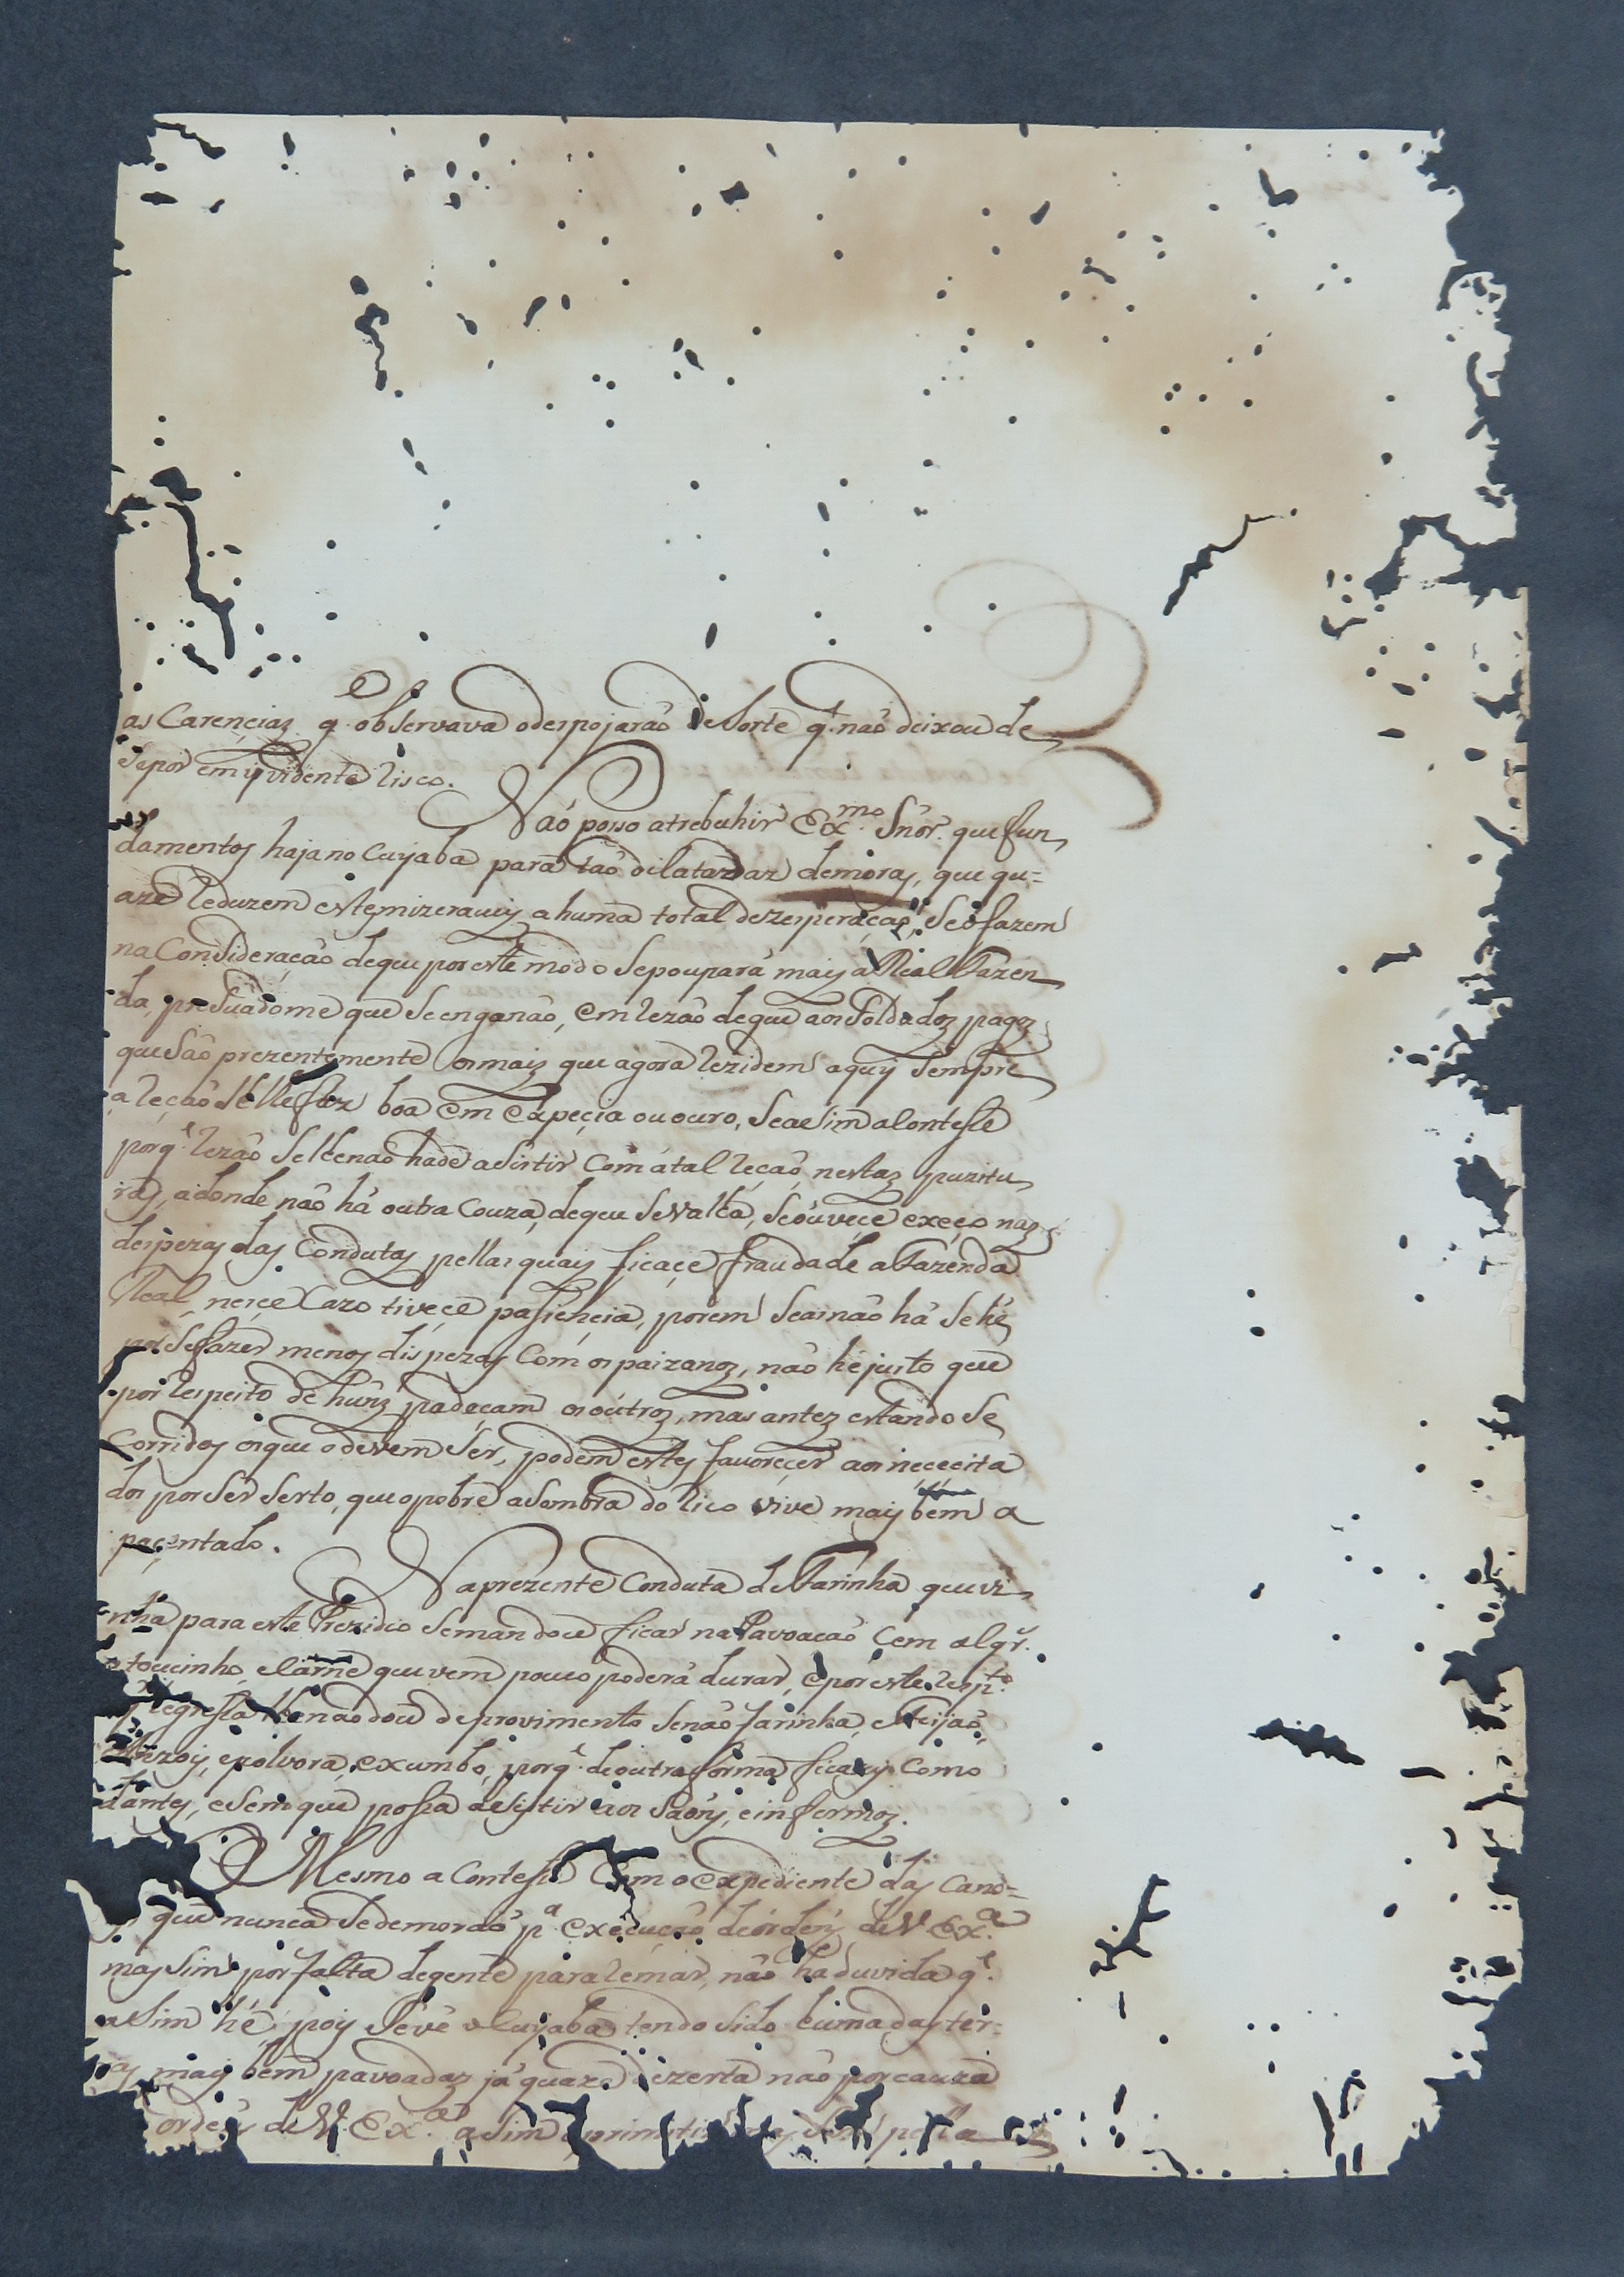 as Carençias q. observava odespojarão de Sorte q. não deixou de
Sepor em ividente Risco.
Não posso atrebuhir Ex.mo Snõr. que fun
damentos haja no Cuyabá para tão dilatadas demoras, que qu=
aze Reduzem estes mizeraveis a huma total dezesperação, Se o fazem
na Consideração de que por este modo Sepoupará mais a Real Fazen
da, presuadome que Se enganão, em Rezão de que aos Soldados pagos
que São prezentemente os mais que agora Rezidem aquy Sempre
a Reção Selhe faz boa em Expeçia ou ouro, Se asim aContesse
porq. Rezão Selhe não hade asistir Com a tal Reção, nestas
adonde não há outra Couza, de que Se valha, Se ouveçe exeço nas
despezas das Condutas pellas quais ficaçe fraudade a Fazenda
Real, neiçe Cazo tiveçe pasiençia, porem Se ai não há Se hé
por Sefazer menos dispezas Com os paizanos, não hé justo que
por Respeito de huns padeçam os outros, mas antes estando So
Corridos os que o devem Ser, podem estes favoreçer aos neçeçita
dos por Ser Serto, que o pobre a Sombra do Rico vive mais bem a
paçentado.
Na prezente Conduta de Farinha que vi
nha para este Prezidio Se mandou ficar na Pavoação Cem alqr.
toucinho, e Carne que vem pouco poderá durar, e por este Resp.to
Regressa lhe não dou de provimento Senão farinha, e Feijão,
Anzois, e polvora, e xumbo, porq. de outra forma ficaria Como
dantes, e Sem que possa asistir aos Saons, e infermos.
O Mesmo aContesse Com o expediente das Cano=
que nunca Sedemorão p.a execução de ordens de V. Ex.a
mas Sim por falta de gente para Remar, não há duvida q.
asim hé, pois Se vê o Cuyabá tendo Sido huma das ter=
ras mais bem pavoadas já quaze dezerta não por cauza
ordens de V. Ex.a asim